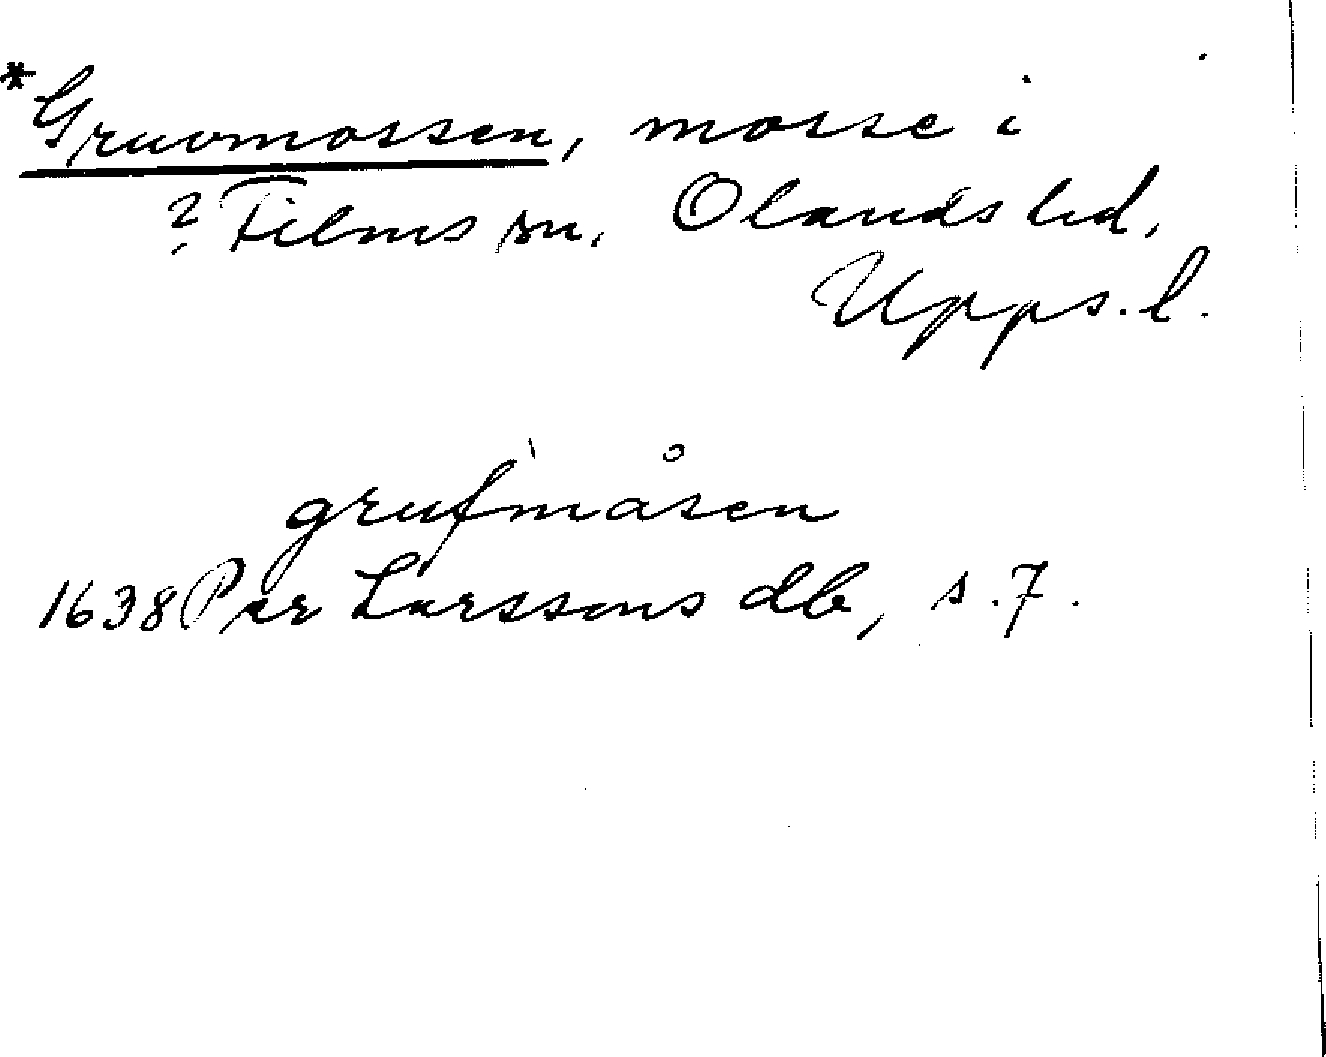 *Gruvmossen, mosse i
? Films sn, Olands hd,
Upps. l.
grufmåsen
1638 Per Larssons db, s. 7.